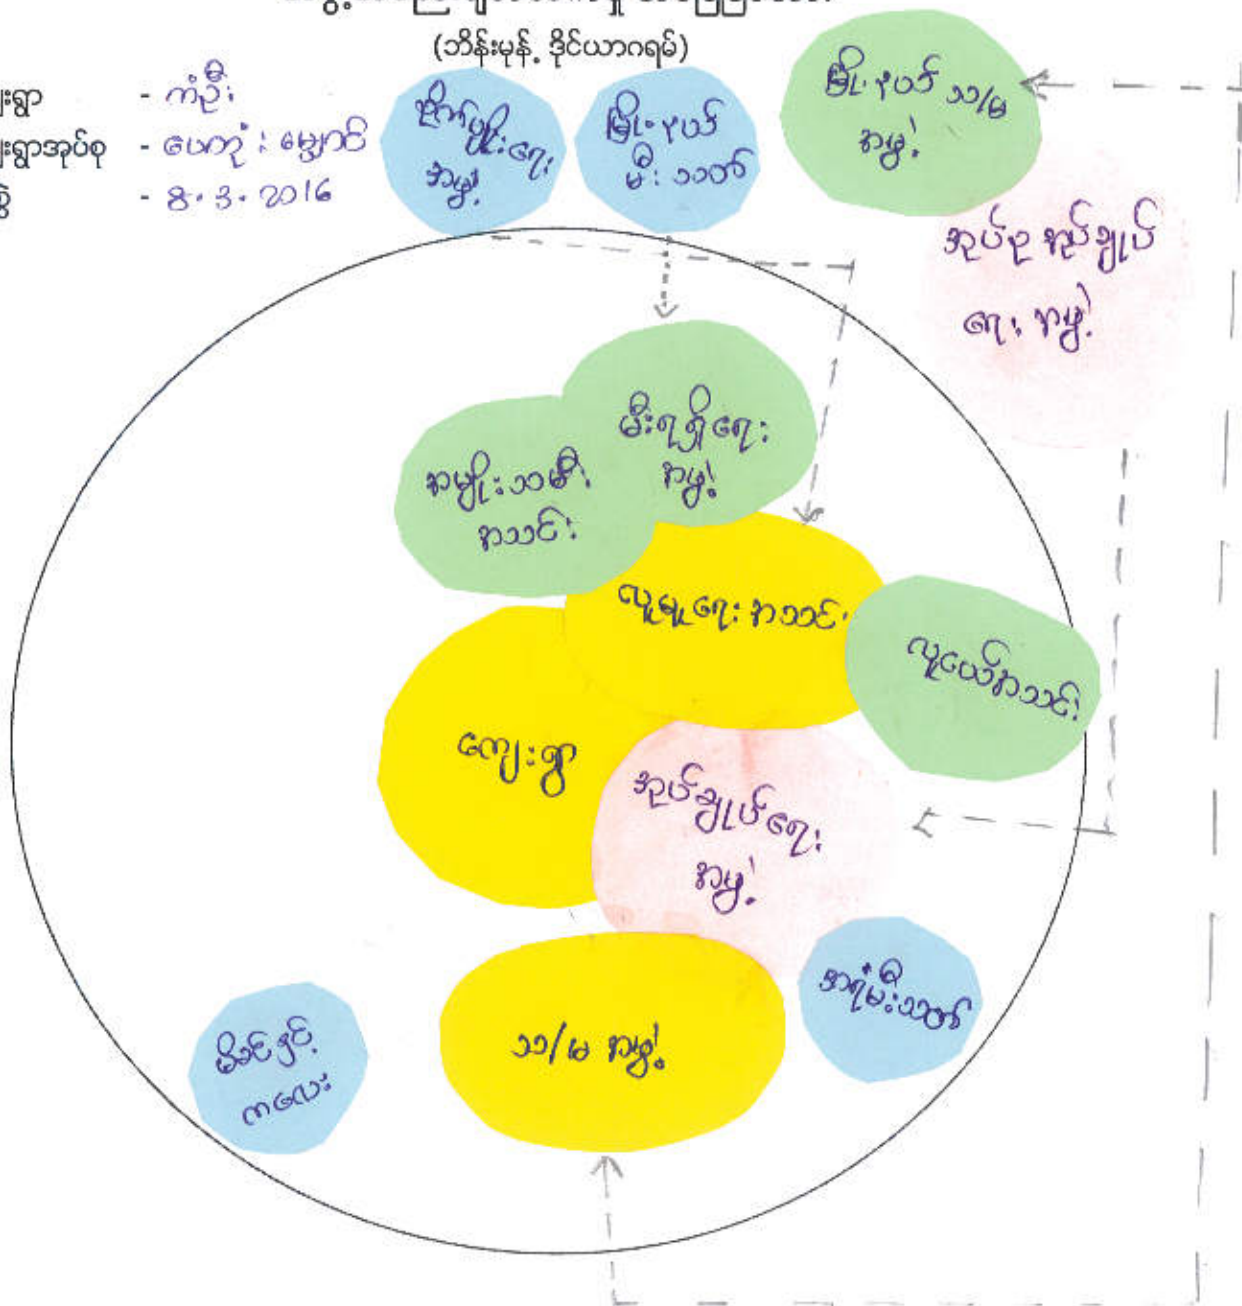 (ဘိန်းမုန့် ဒိုင်ယာဂရမ်)
- ကံဦး
ရွာအုပ်စု
- 8.3.2016
စိုက်ပျိုးရေး
အဖွဲ့
မြို့နယ်
မီးသတ်
မြို့နယ် သ/မ
အဖွဲ့
အုပ်စု အုပ်ချုပ်
ရေး အဖွဲ့
မီးရရှိရေး
အဖွဲ့
အမျိုးသမီး
အသင်း
လူမှုရေး အသင်း
လူငယ်အသင်း
ကျေးရွာ
အုပ်ချုပ်ရေး
အဖွဲ့
အရံမီးသတ်
သ/မ အဖွဲ့
မိခင်နှင့်
ကလေး